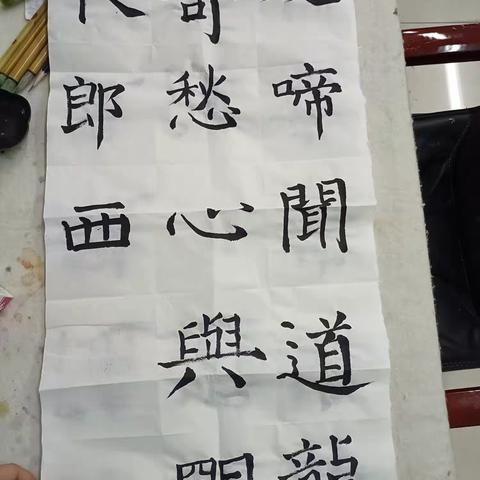 啼聞道龍
愁心與明
郎西